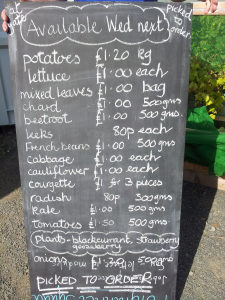 at
picked to
order
Available Wed next
potatoes £1.20 kg
lettuce £1.00 each
mixed leaves £1.00 bag
chard £1.00 500gms
beetroot £1.00 500 gms.
leeks 80p each
French beans £1.00 500gms
cabbage £1.00 each
cauliflower £1.00 each
courgette £1 for 3 pieces
radish 80p 300gms
kale £1.00 500gms
tomatoes £1.50 500gms
plants - blackcurrant, strawberry
gooseberry
onions
PICKED TO ORDER